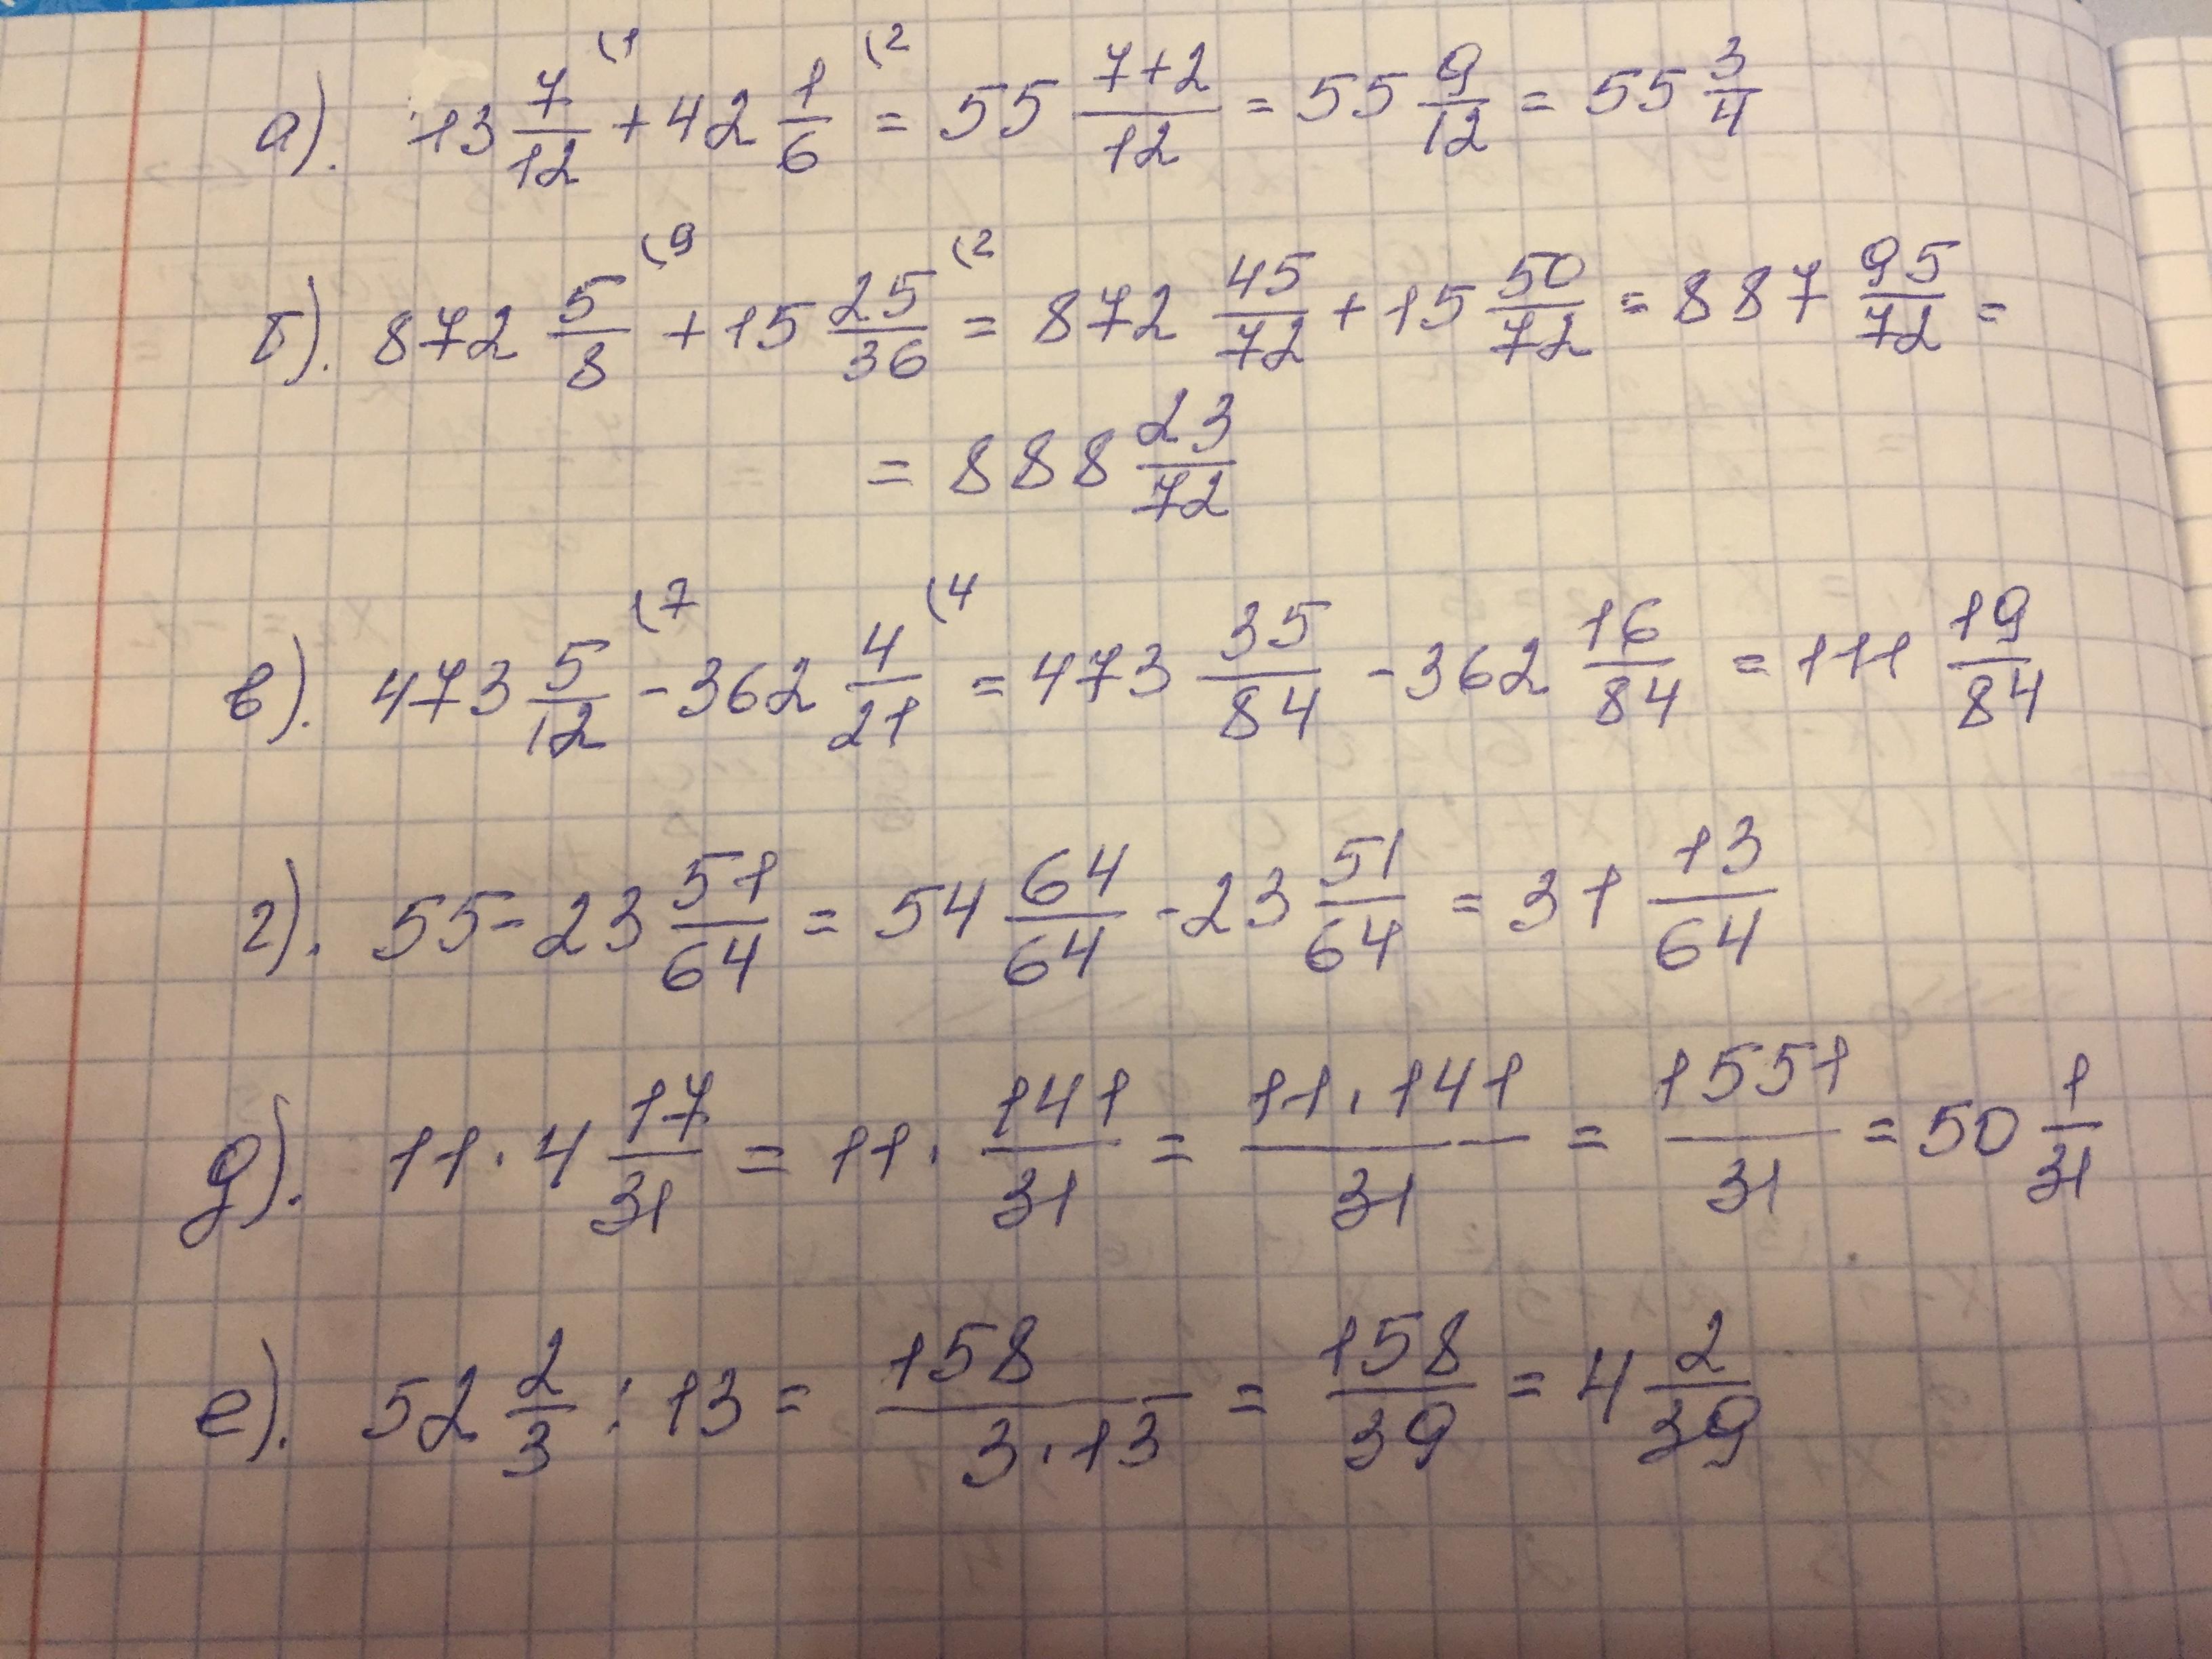 а). 13 7/12 (1 + 42 1/6 (2 = 55 7+2/12 = 55 9/12 = 55 3/4
б). 872 5/8 (9 + 15 25/36 (2 = 872 45/72 + 15 50/72 = 887 95/72 =
= 888 23/72
в). 473 5/12 (7 - 362 4/21 (4 = 473 35/84 - 362 16/84 = 111 19/84
г). 55 - 23 51/64 = 54 64/64 - 23 51/64 = 31 13/64
д). 11 · 4 17/31 = 11 · 141/31 = 11 · 141/31 = 1551/31 = 50 1/31
е). 52 2/3 : 13 = 158/3 · 13 = 158/39 = 4 2/39